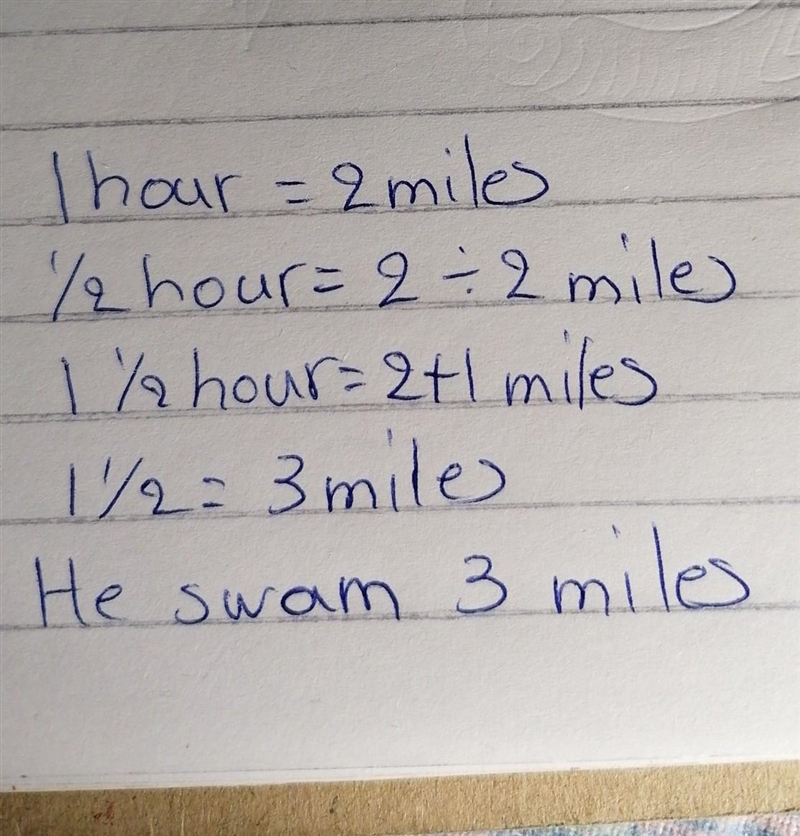 1 hour = 2 miles
1/2 hour = 2 ÷ 2 miles
1 1/2 hour = 2+1 miles
1 1/2 = 3 miles
He swam 3 miles